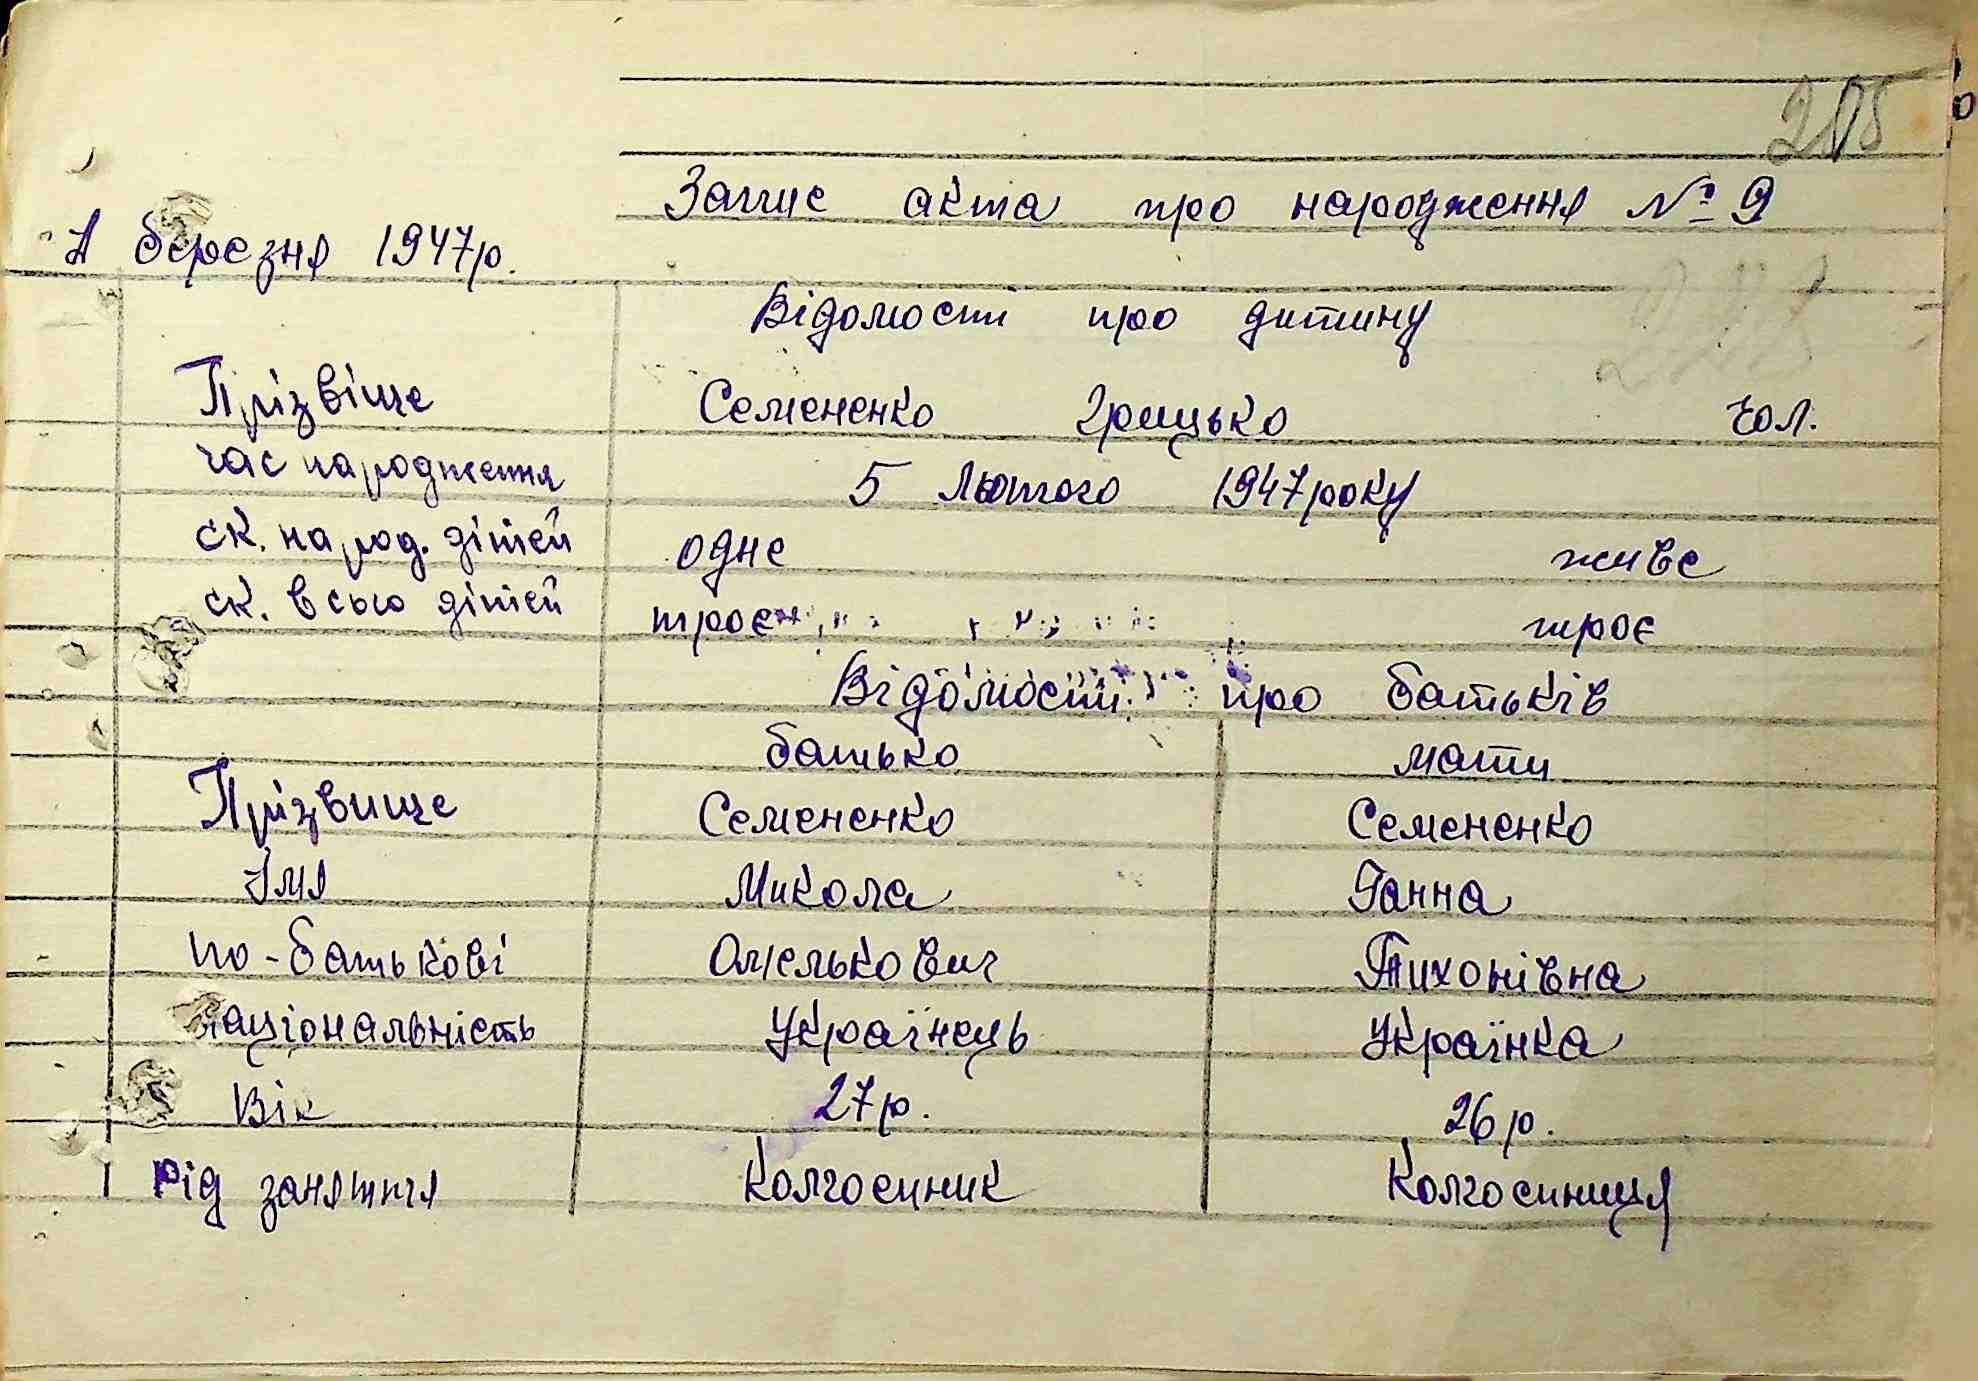 Запис акта про народження № 9
1 березня 1947р.
Відомості про дитину
Прізвіще Семененко Грицько чол.
час народження 5 лютого 1947року
ск. народ. дітей одне живе
ск. всього дітей троє троє
Відомості про батьків
батько мати
Прізвище Семененко Семененко
Імя Микола Ганна
по-батькові Омелькович Тихонівна
національність Українець Українка
Вік 27р. 26р.
Рід заняття Колгоспник Колгоспниця